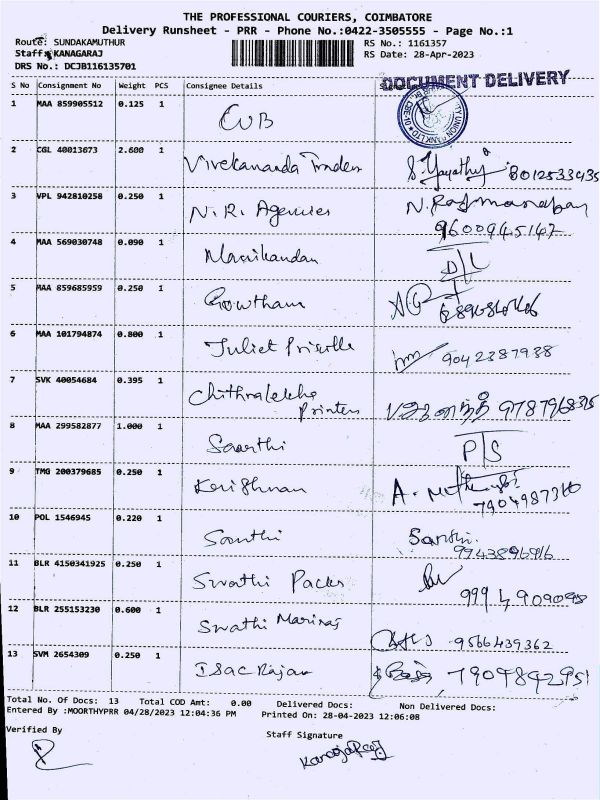 THE PROFESSIONAL COURIERS, COIMBATORE
Delivery Runsheet - PRR - Phone No.:0422-3505555 - Page No.:1
Route: SUNDAKAMUTHUR RS No.: 1161357
Staff: KANAGARAJ RS Date: 28-Apr-2023
DRS No.: DCJB116135701
DOCUMENT DELIVERY
S No Consignment No Weight PCS Consignee Details
1 MAA 859905512 0.125 1 CUB
2 CGL 40013673 2.600 1 Vivekananda Traders 8012533435
3 VPL 942810258 0.250 1 N.R. Agencies N.Rajmanoban
9600945147
4 MAA 569030748 0.090 1 Manikandan D/L
5 MAA 859685959 0.250 1 Gowtham
6 MAA 101794874 0.800 1 Juliet Priscilla 9042387938
7 SVK 40054684 0.395 1 Chithralekha
Printers
8 MAA 299582877 1.000 1 Saarthi P/S
9 TMG 200379685 0.250 1 Krishnan A.
7904987310
10 POL 1546945 0.220 1 Santhi Santhi.
11 BLR 4150341925 0.250 1 Swathi Packs
12 BLR 255153230 0.600 1 Swathi Mariraj
9566439362
13 SVM 2654309 0.250 1 Isac Rajan 7904842951
Total No. Of Docs: 13 Total COD Amt: 0.00 Delivered Docs: Non Delivered Docs:
Entered By :MOORTHYPRR 04/28/2023 12:04:36 PM Printed On: 28-04-2023 12:06:08
Verified By Staff Signature